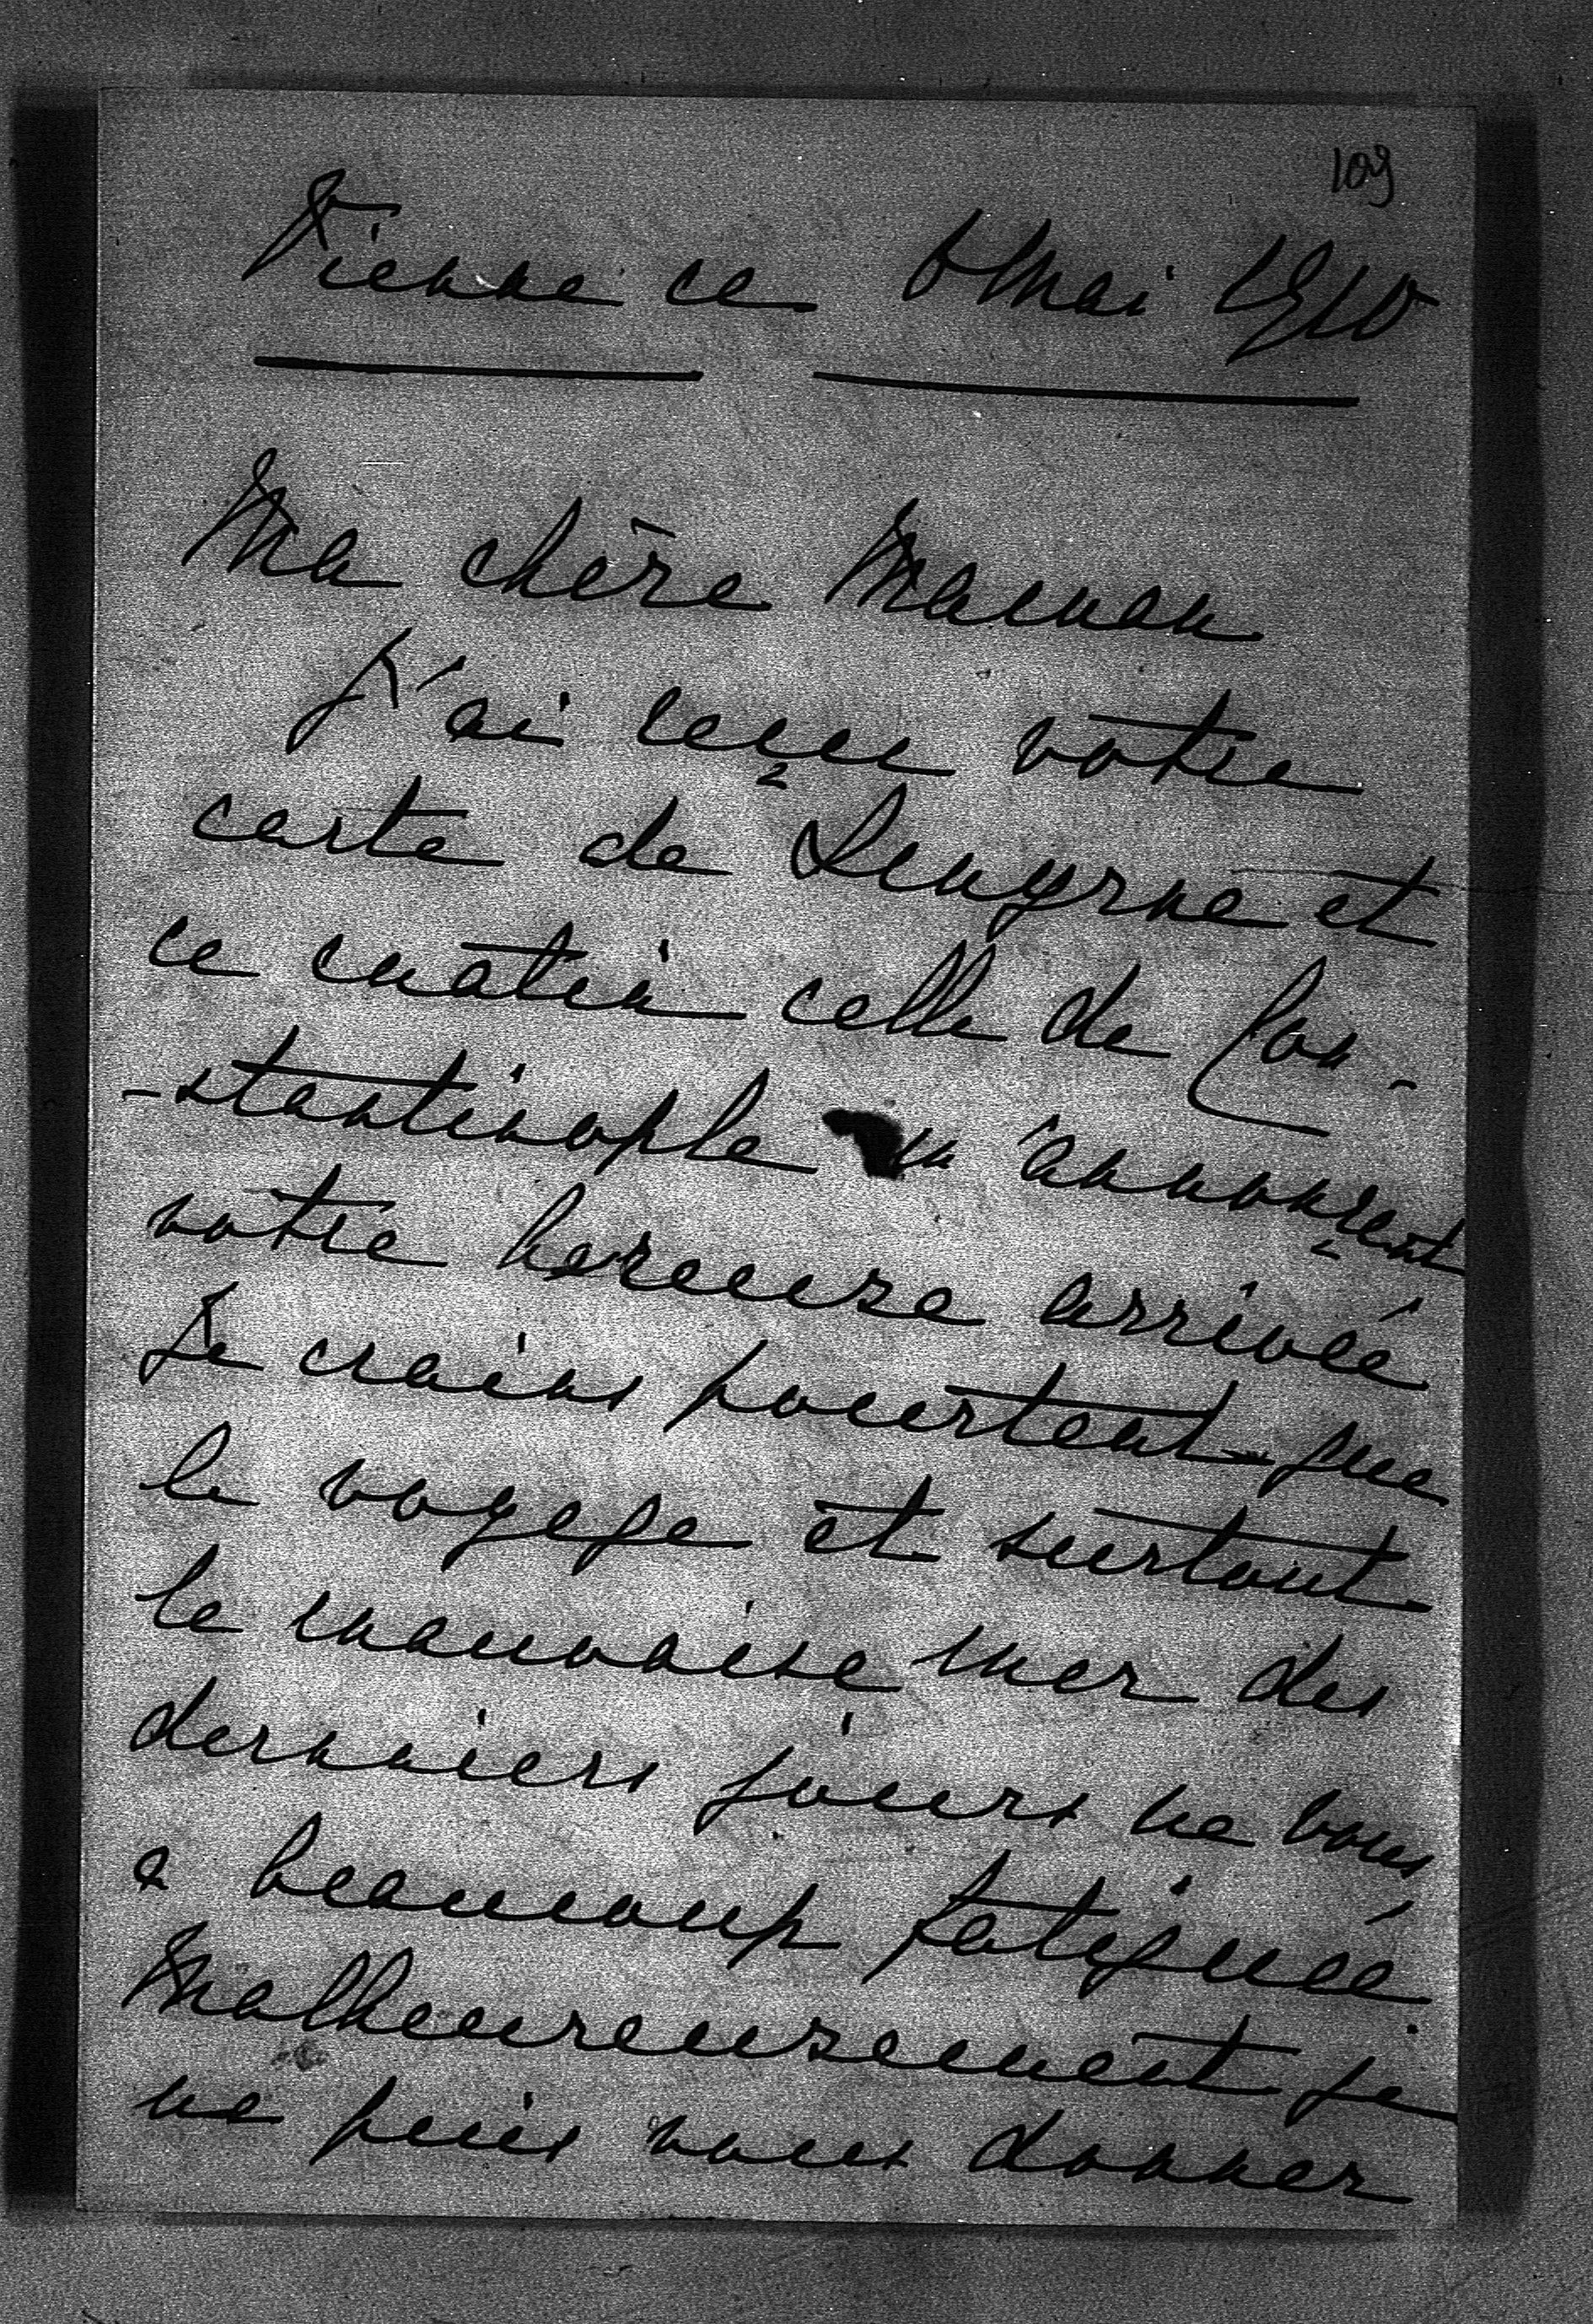 109
Vienne ce 6 Mai 1910
Ma chère Maman
J'ai reçu votre
carte de Smyrne et
ce matin celle de Con-
-stantinople m'annonçent
votre hereuse arrivée
Je crains pourtant que
le voyage et surtout
la mauvaise mer des
derniers jours ne vous
a beaucoup fatiguée.
Malheureusement je
ne puis vous donner